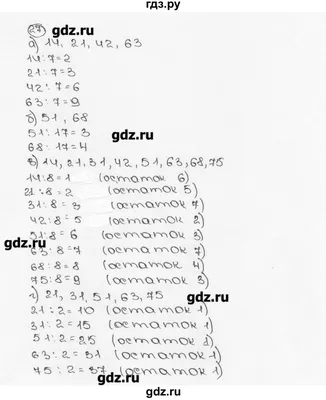 gdz.ru
27
gdz.ru
а) 14, 21, 42, 63
14:7=2
21:7=3
42:7=6
63:7=9
gdz.ru
б) 51, 68
51:17=3
68:17=4
gdz.ru
в) 14, 21, 31, 42, 51, 63, 68, 75
14:8=1 (остаток 6)
21:8=2 (остаток 5)
31:8=3 (остаток 7)
42:8=5 (остаток 2)
51:8=6 (остаток 3)
63:8=7 (остаток 7)
68:8=8 (остаток 4)
75:8=9 (остаток 3)
г) 21, 31, 51, 63, 75
21:2=10 (остаток 1)
31:2=15 (остаток 1)
51:2=25 (остаток 1)
63:2=31 (остаток 1)
75:2=37 (остаток 1)
gdz.ru